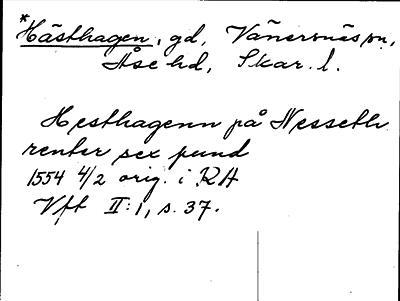 *Hästhagen, gd, Vänersnäs sn,
Åse hd, Skar. l.
Hesthagenn på Nesseth
renter sex pund
1554 4/2 orig. i RA
Vft II:1, s. 37.